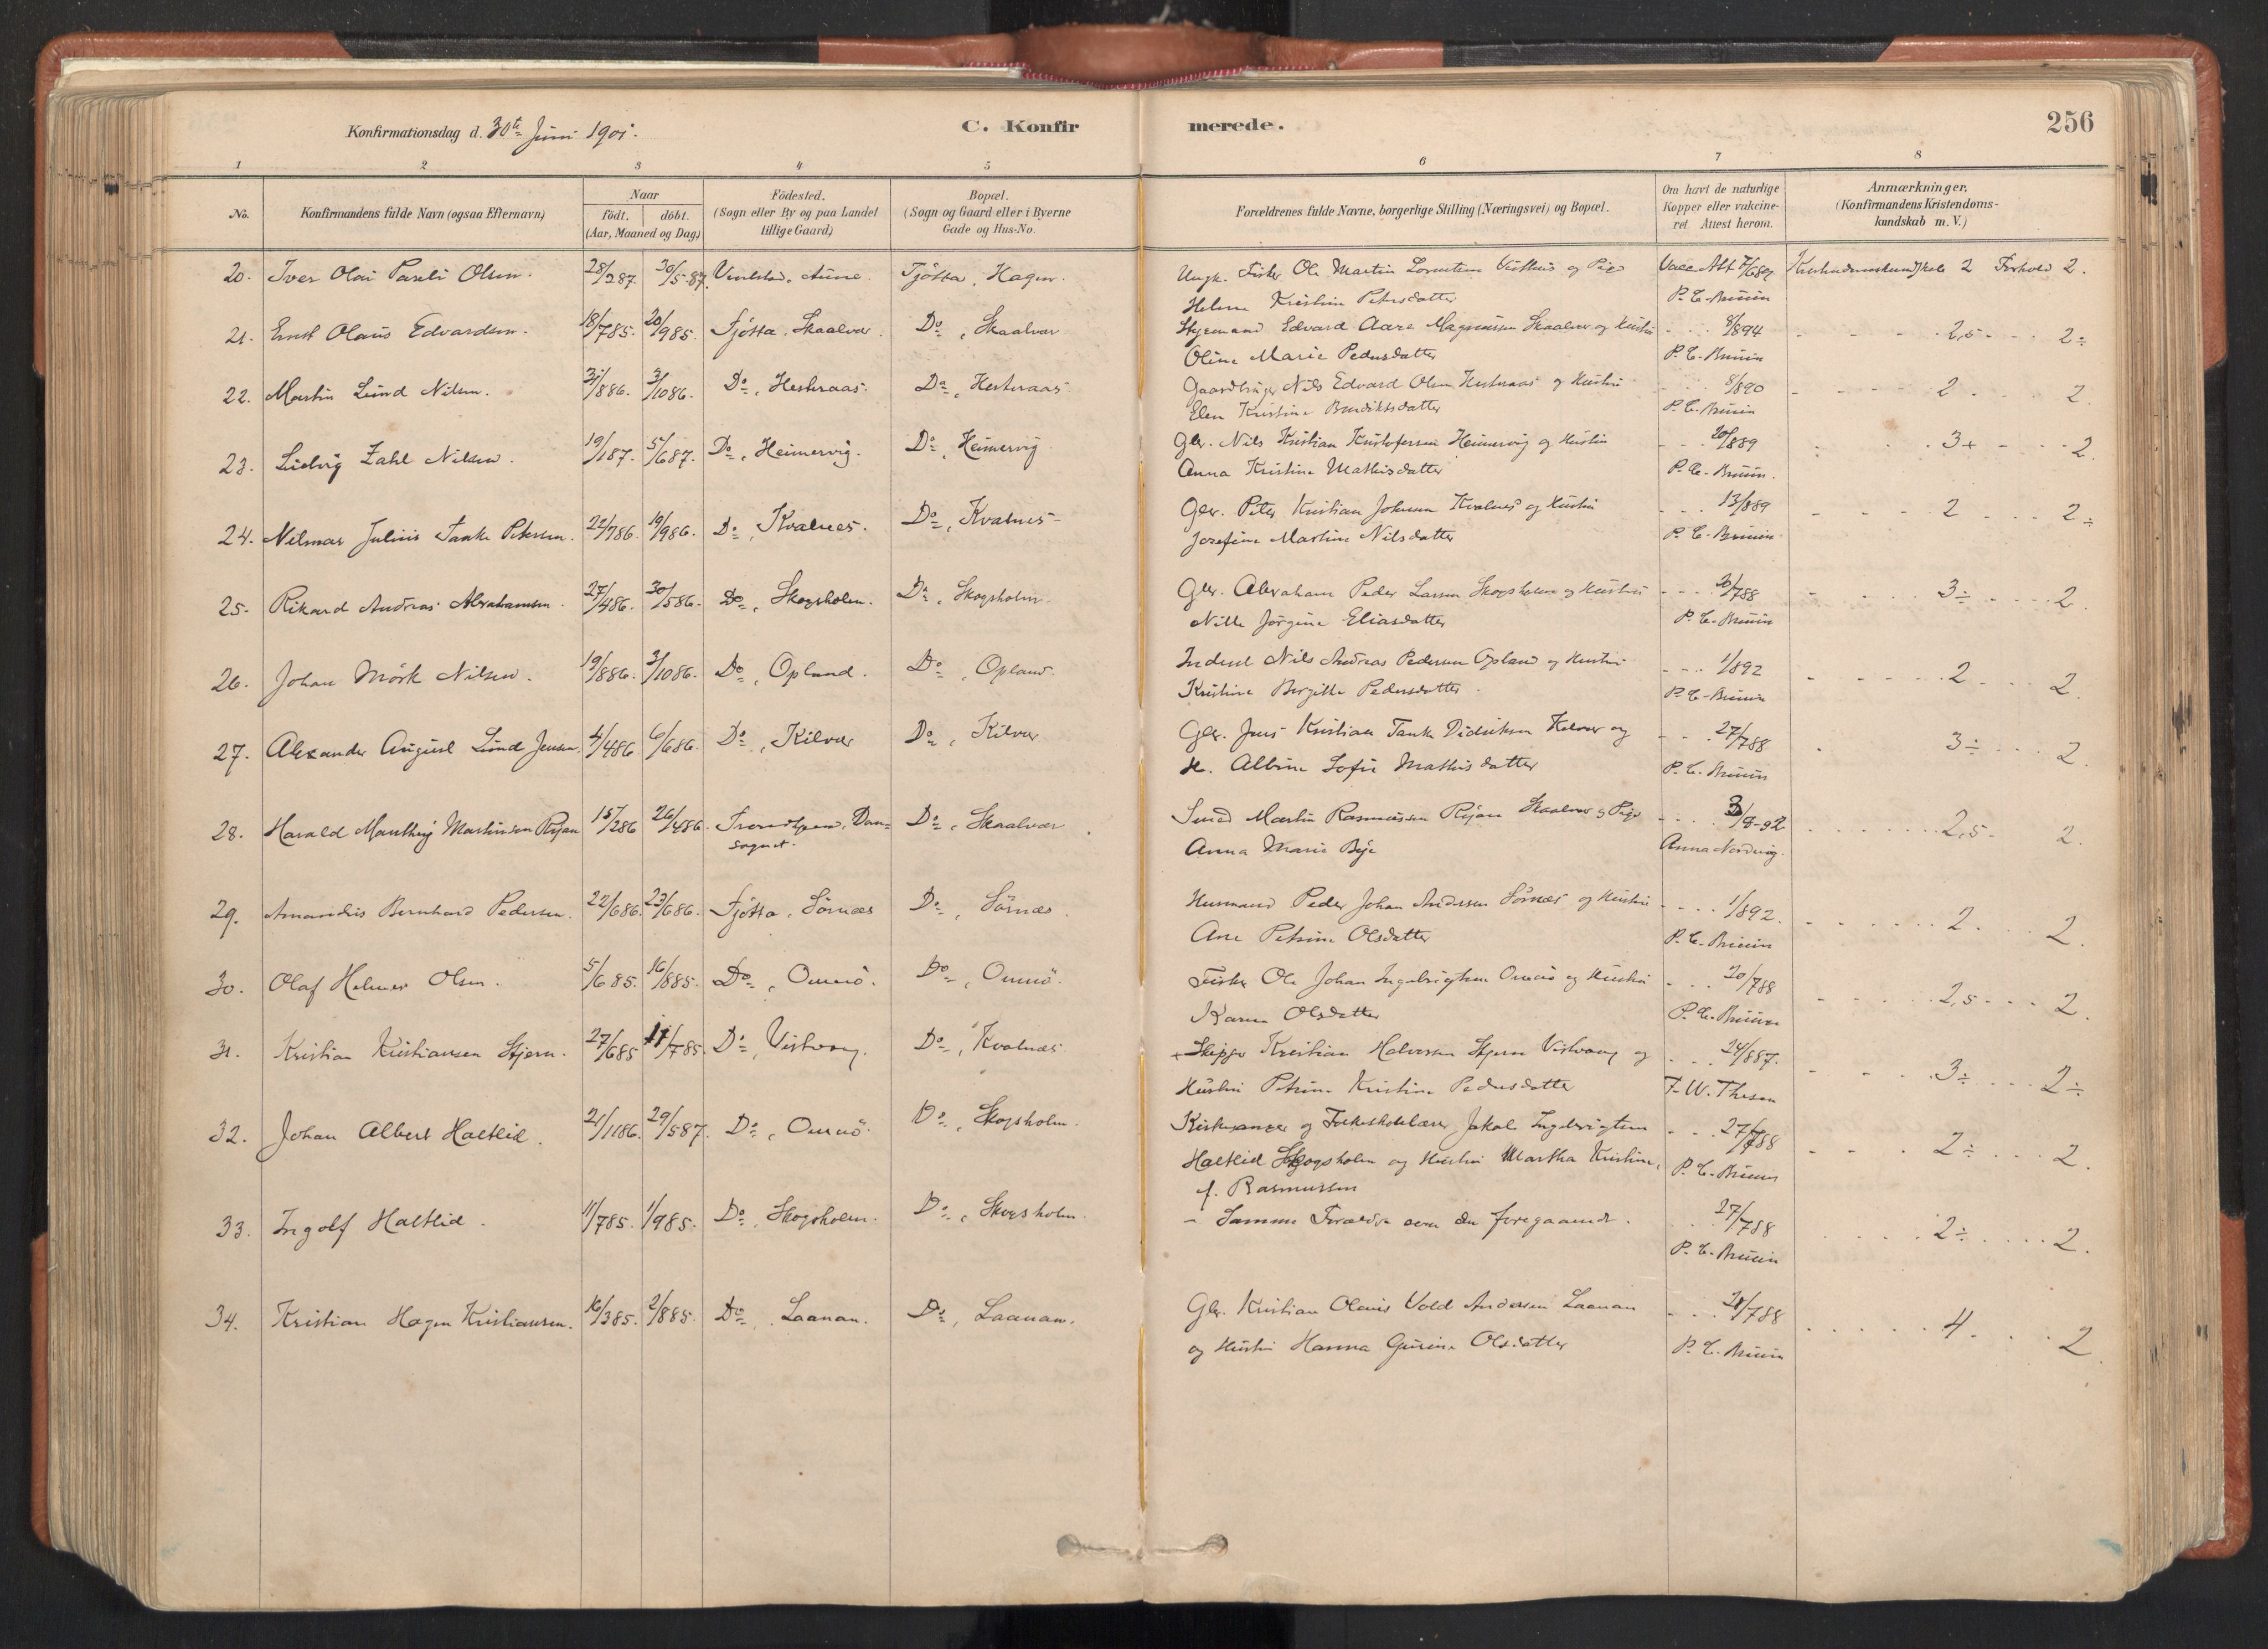 Konfirmationsdag d. 30te Juni 1901.
C. Konfirmerede.
256
1 2 3 4 5 6 7 8
No. Konfirmandens fulde Navn (ogsaa Efternavn) Naar født. døbt. (Aar, Maaned og Dag) Födested. (Sogn eller By og paa Landet tillige Gaard) Bopæl. (Sogn og Gaard eller i Byerne Gade og Hus-No. Forældrenes fulde Navne, borgerlige Stilling (Næringsvei) og Bopæl. Om havt de naturlige Kopper eller vakcineret. Attest herom. Anmærkninger. (Konfirmandens Kristendomskundskab m. V.)
20. Iver Olai Olsen. 28/287. 30/5-87. Aune. Tjötta, Hagen. Ungk. Fisker Ole Martin og Pige Vacc. Att 7/689 Kristendomskundskab 2 Forhold 2.
Helene Kristine Petersdatter P. C. Bruun
21. Ernst Olaus Edvardsen. 18/785. 20/985. Tjötta, Skaalvær. Do, Skaalvær. Styrmand Edvard Aare Magnussen Skaalvær og Hustru - - 8/894 - - 2,5 - - - 2÷
Oline Marie Pedersdatter P. C. Bruun
22. Martin Lund Nilsen. 31/886. 3/1086. Do, Hestnaas. Do, Hestnaas. Gaardbruger Nils Edvard Olsen Hestnaas og Hustru - - 8/890 - - 2 - - - 2.
Elen Kristine Bendiktsdatter P. C. Bruun
23. Ludvig Zahl Nilsen. 19/187. 5/687. Do, Heimervig. Do, Heimervig Gbr. Nils Kristian Kristofersen Heimervig og Hustru - - 20/889 - - 3+ - - - 2.
Anna Kristine Mathisdatter P. C. Bruun.
24. Nilmar Julius Tanke Petersen. 22/786. 19/986. Do, Kvalnes. Do, Kvalnes. Gbr. Peter Kristian Johnsen Kvalnes og Hustru - - 13/889 - - 2 - - - 2÷
Josefine Martine Nilsdatter P. C. Bruun
25. Rikard Andreas Abrahamsen. 27/486. 30/586. Do, Skogsholm. Do, Skogsholm. Gbr. Abraham Peder Larsen Skogsholm og Hustru - - 20/788 - - 3÷ - - - 2.
Nille Jørgine Eliasdatter P. C. Bruun
26. Johan Mörk Nilsen. 19/886. 3/1086. Do, Opland. Do, Opland. Inderst Nils Andreas Pedersen Opland og Hustru - - 1/892 - - 2 - - - 2.
Kristine Bergitte Pedersdatter. P. C. Bruun
27. Alexander August Lund Jensen. 4/486 6/686. Do, Kilvær Do, Kilvær Gbr. Jens Kristian Tanke Didriksen Kilvær og - - 27/788 - - 3÷ - - - 2.
H. Albine Sofie Mathisdatter P. C. Bruun
28. Harald Manthey Martinsen Ryan 15/286 26/486. Trondhjem, Domsognet. Do, Skaalvær Smed Martin Rasmussen Ryan Skaalvær og Pige - - 3/8-92 - - 2,5 - - 2.
Anna Marie Bye Anna Nordvig.
29. Amandus Bernhard Pedersen. 22/686. 23/686. Tjötta, Sörnæs Do, Sörnæs. Husmand Peder Johan Andersen Sörnæs og Hustru - - 1/892. - - 2 - - - 2.
Ane Petrine Olsdatter P. C. Bruun
30. Olaf Helmer Olsen. 5/685. 16/885. Do, Omnö. Do, Omnö. Fisker Ole Johan Ingebrigtsen Omnö og Hustru - - 20/788 - - 2,5 - - - 2.
Karen Olsdatter P. C. Bruun
31. Kristian Kristiansen Stjern. 27/685 11/785. Do, Vistvang. Do, Kvalnæs. + Skipper Kristian Halvorsen Stjern Vistvang og - - 24/887. - - 3÷ - - 2÷
Hustru Petrine Kristine Pedersdatter F. W. Thesen
32. Johan Albert Haltlid. 21/1186. 29/587. Do, Omnö. Do, Skogsholm. Kirkesanger og Folkeskolelærer Jakob Ingebrigtsen - - 27/788 - - 2÷ - - - 2.
Haltlid Skogsholm og Hustru Martha Kristine, P. C. Bruun
f. Rasmussen
33. Ingolf Haltlid. 11/785. 1/985. Do, Skogsholm. Do, Skogsholm. - Samme Forældre som den foregaaende. - - 27/788 - - 2÷ - - - 2.
P. C. Bruun
34. Kristian Hagen Kristiansen. 16/385. 2/885. Do, Laanan. Do, Laanan. Gbr. Kristian Olaus Vold Andersen Laanan - - 28/788 - - 4 - - - 2.
og Hustru Hanna Gurine Olsdatter P. C. Bruun